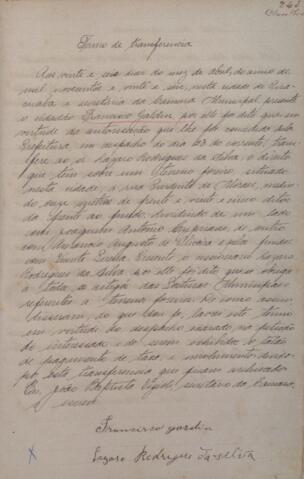 243
Termo de transferencia
Aos vinte e seis dias do mez de abril, do anno de
mil novecentos e vinte e seis, nesta cidade de Pira-
cicaba e secretaria da Camara Municipal, presente
o cidadão Francisco Gardin, por elle foi dito que em
virtude da autorisação que lhe foi concedida pela
Prefeitura em despacho do dia 23 do corrente, trans-
fere ao sr. Lazaro Rodrigues da Silva o direito
que tem sobre um terreno foreiro, situado
nesta cidade a rua Prudente de Moraes, medin-
do onze metros de frente e vinte e cinco ditos
da frente ao fundo, dividindo de um lado
com Joaquim Antonio, de outro
com Augusto de Oliveira e pelos fundos
com Presente o cessionario Lazaro
Rodrigues da Silva por elle foi dito que se obriga
a todos os artigos das Posturas Municipaes
referentes a terrenos foreiros. De como assim
disseram, do que dou fé, lavrei este termo
em virtude do despacho exarado na petição
do interessado e de serem exhibidos os talões
de pagamento de taxa e emolumentos
por esta transferencia que ficam archivados
Eu, João Baptista, secretario da Camara,
o escrevi
Francisco gardin
Lazaro Rodrigues da Silva